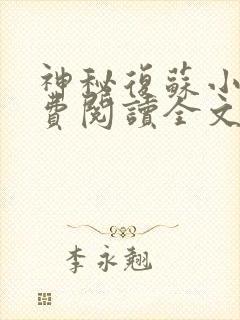 神秘復蘇小
費閱讀全文
李永翹